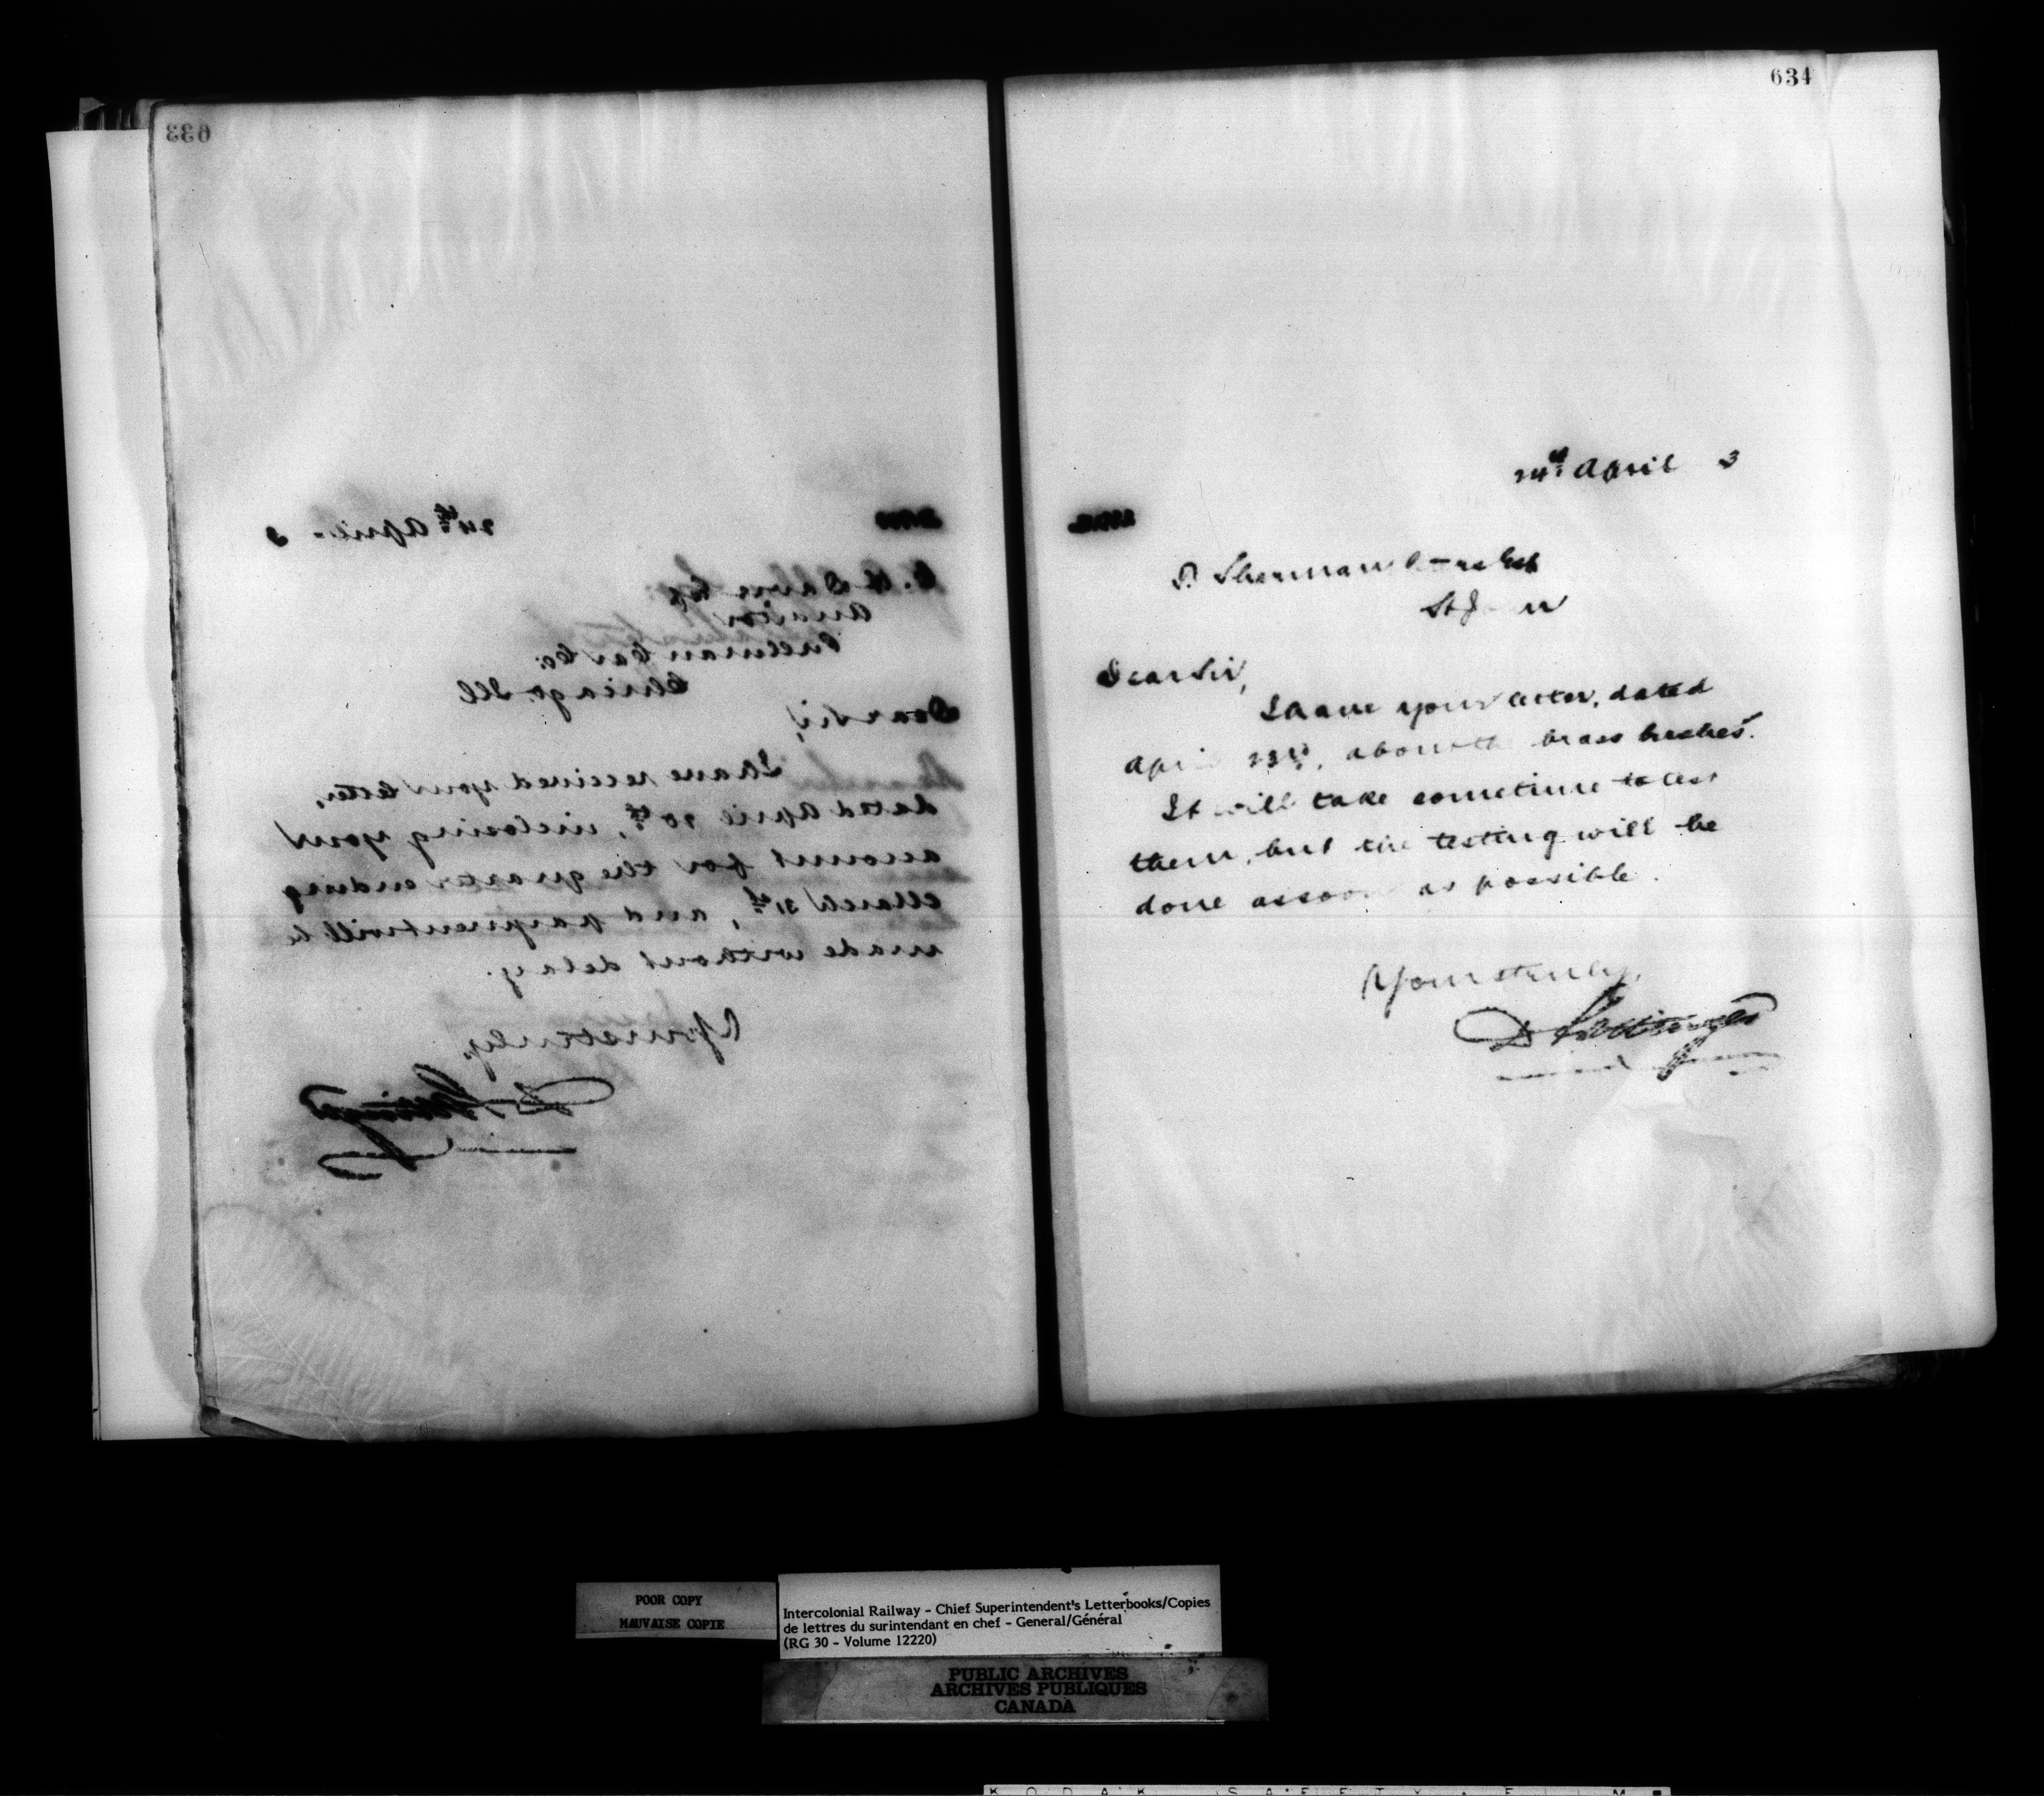 633
24th April - 3
Esq
Auditor
Pullman Car Co.
Chicago Ill
Dear Sir,
I have received your letter,
dated April 20th, inclosing your
account for the quarter ending
March 31st, and payment will be
made without delay.
Yours truly,
D Pottinger
634
24th April 3
D. Sherman
St
Dear Sir,
I have your letter, dated
April 23rd, about the brass bushes.
It will take sometime to test
them, but the testing will be
done as soon as possible.
Yours truly,
D Pottinger
POOR COPY
MAUVAISE COPIE
Intercolonial Railway - Chief Superintendent's Letterbooks/Copies
de lettres du surintendant en chef - General/Général
(RG 30 - Volume 12220)
PUBLIC ARCHIVES
ARCHIVES PUBLIQUES
CANADA
KODAK SAFETY FILM